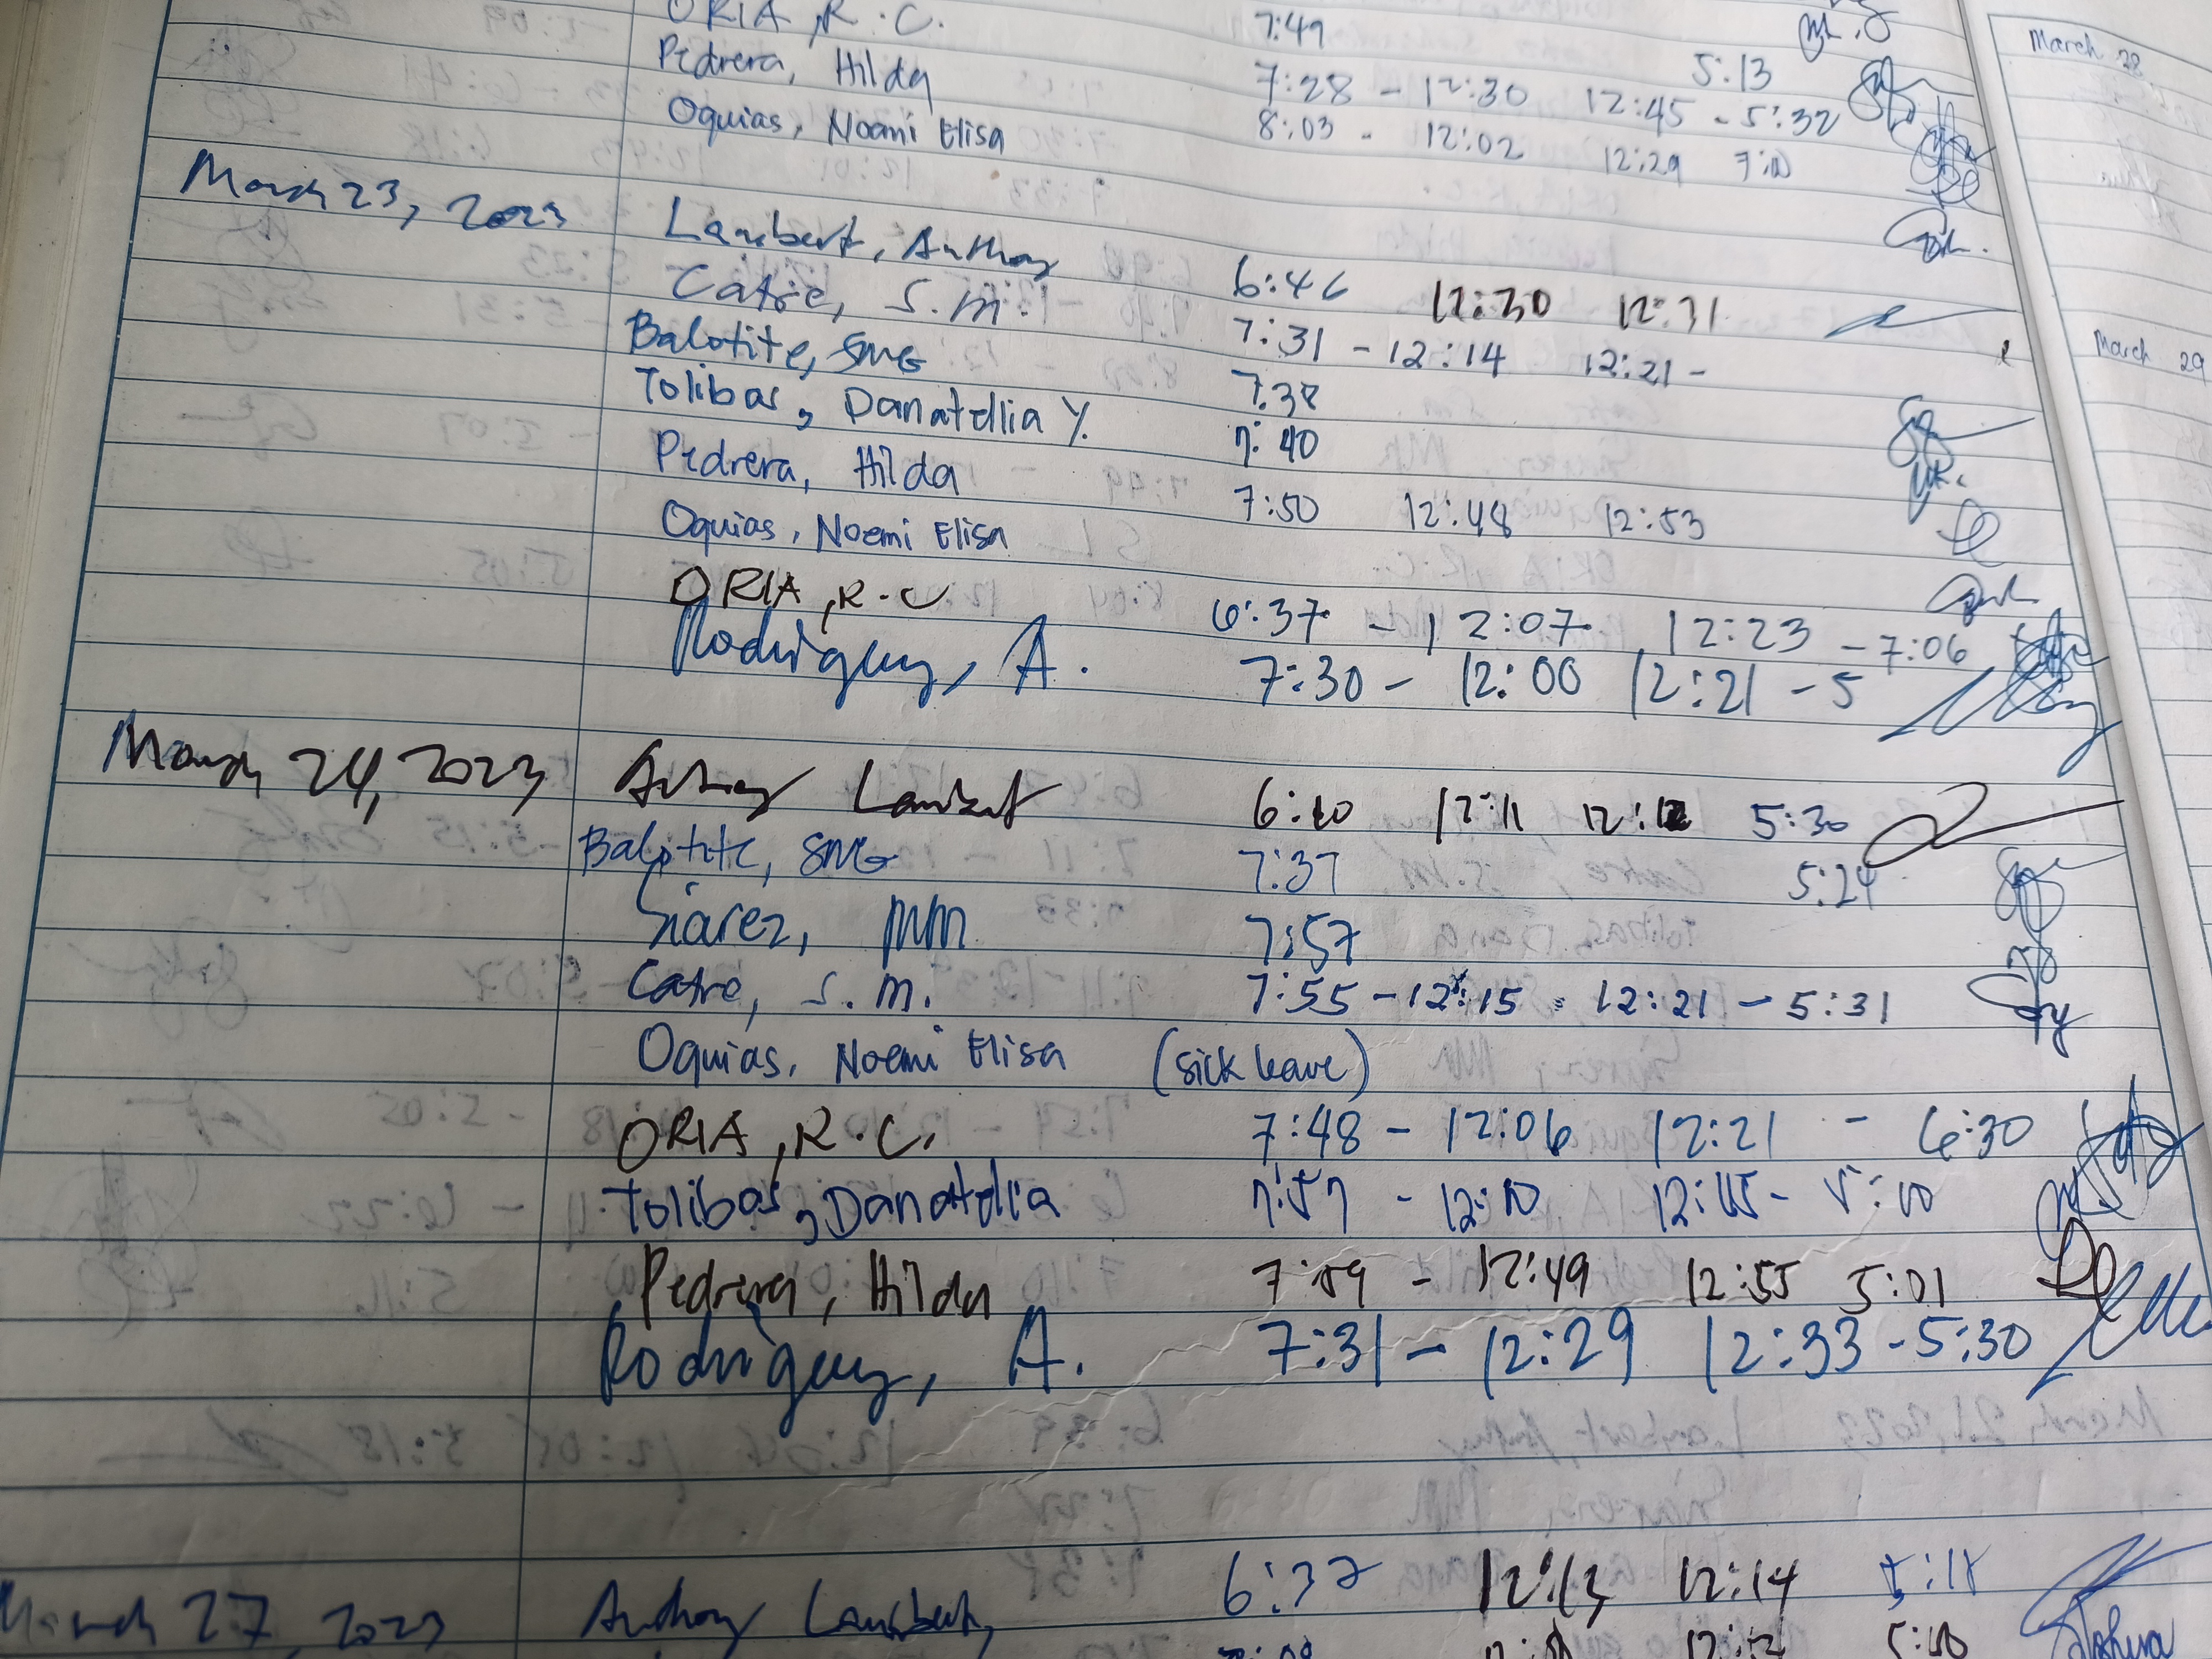 ORIA, R.C. 7:49 5:13
Pedrera, Hilda 7:28 - 12:30 12:45 - 5:32
Oquias, Noemi Elisa 8:03 - 12:02 12:29 7:10
March 23, 2023
Lambert, Anthony 6:46 12:30 12:31
Catre, S.M. 7:31 - 12:14 12:21 -
Balotite, SMG 7:38
Tolibas, Danatelia Y. 7:40
Pedrera, Hilda 7:50 12:48 12:53
Oquias, Noemi Elisa
ORIA, R.C 6:37 - 12:07 12:23 - 7:06
Rodriguez, A. 7:30 - 12:00 12:21 - 5
March 24, 2023 Anthony Lambert 6:40 12:11 12:12 5:30
Balotite, SMG 7:37 5:24
Siarez, MM 7:57
Catre, S.M. 7:55 - 12:15 12:21 - 5:31
Oquias, Noemi Elisa (sick leave)
ORIA, R.C. 7:48 - 12:06 12:21 - 6:30
Tolibas, Danatelia 7:57 - 12:10 12:15 - 5:10
Pedrera, Hilda 7:59 - 12:49 12:55 5:01
Rodriguez, A. 7:31 - 12:29 12:33 - 5:30
March 27, 2023 Anthony Lambert, 6:37 12:13 12:14 5:18
March 28
March 29